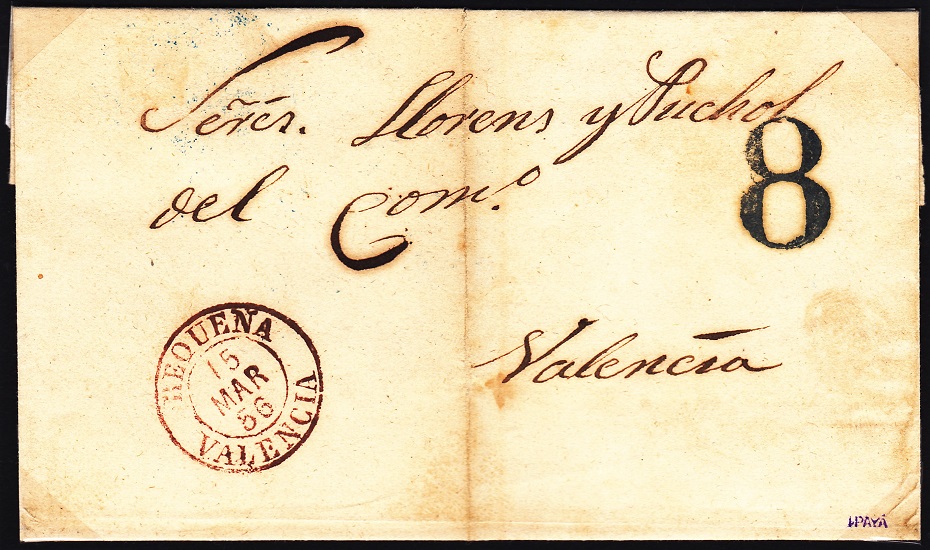 Señres. Llorens y Puchol
del Com.º
8
Valencia
REQUENA
15
MAR
56
VALENCIA
I.PAYÁ